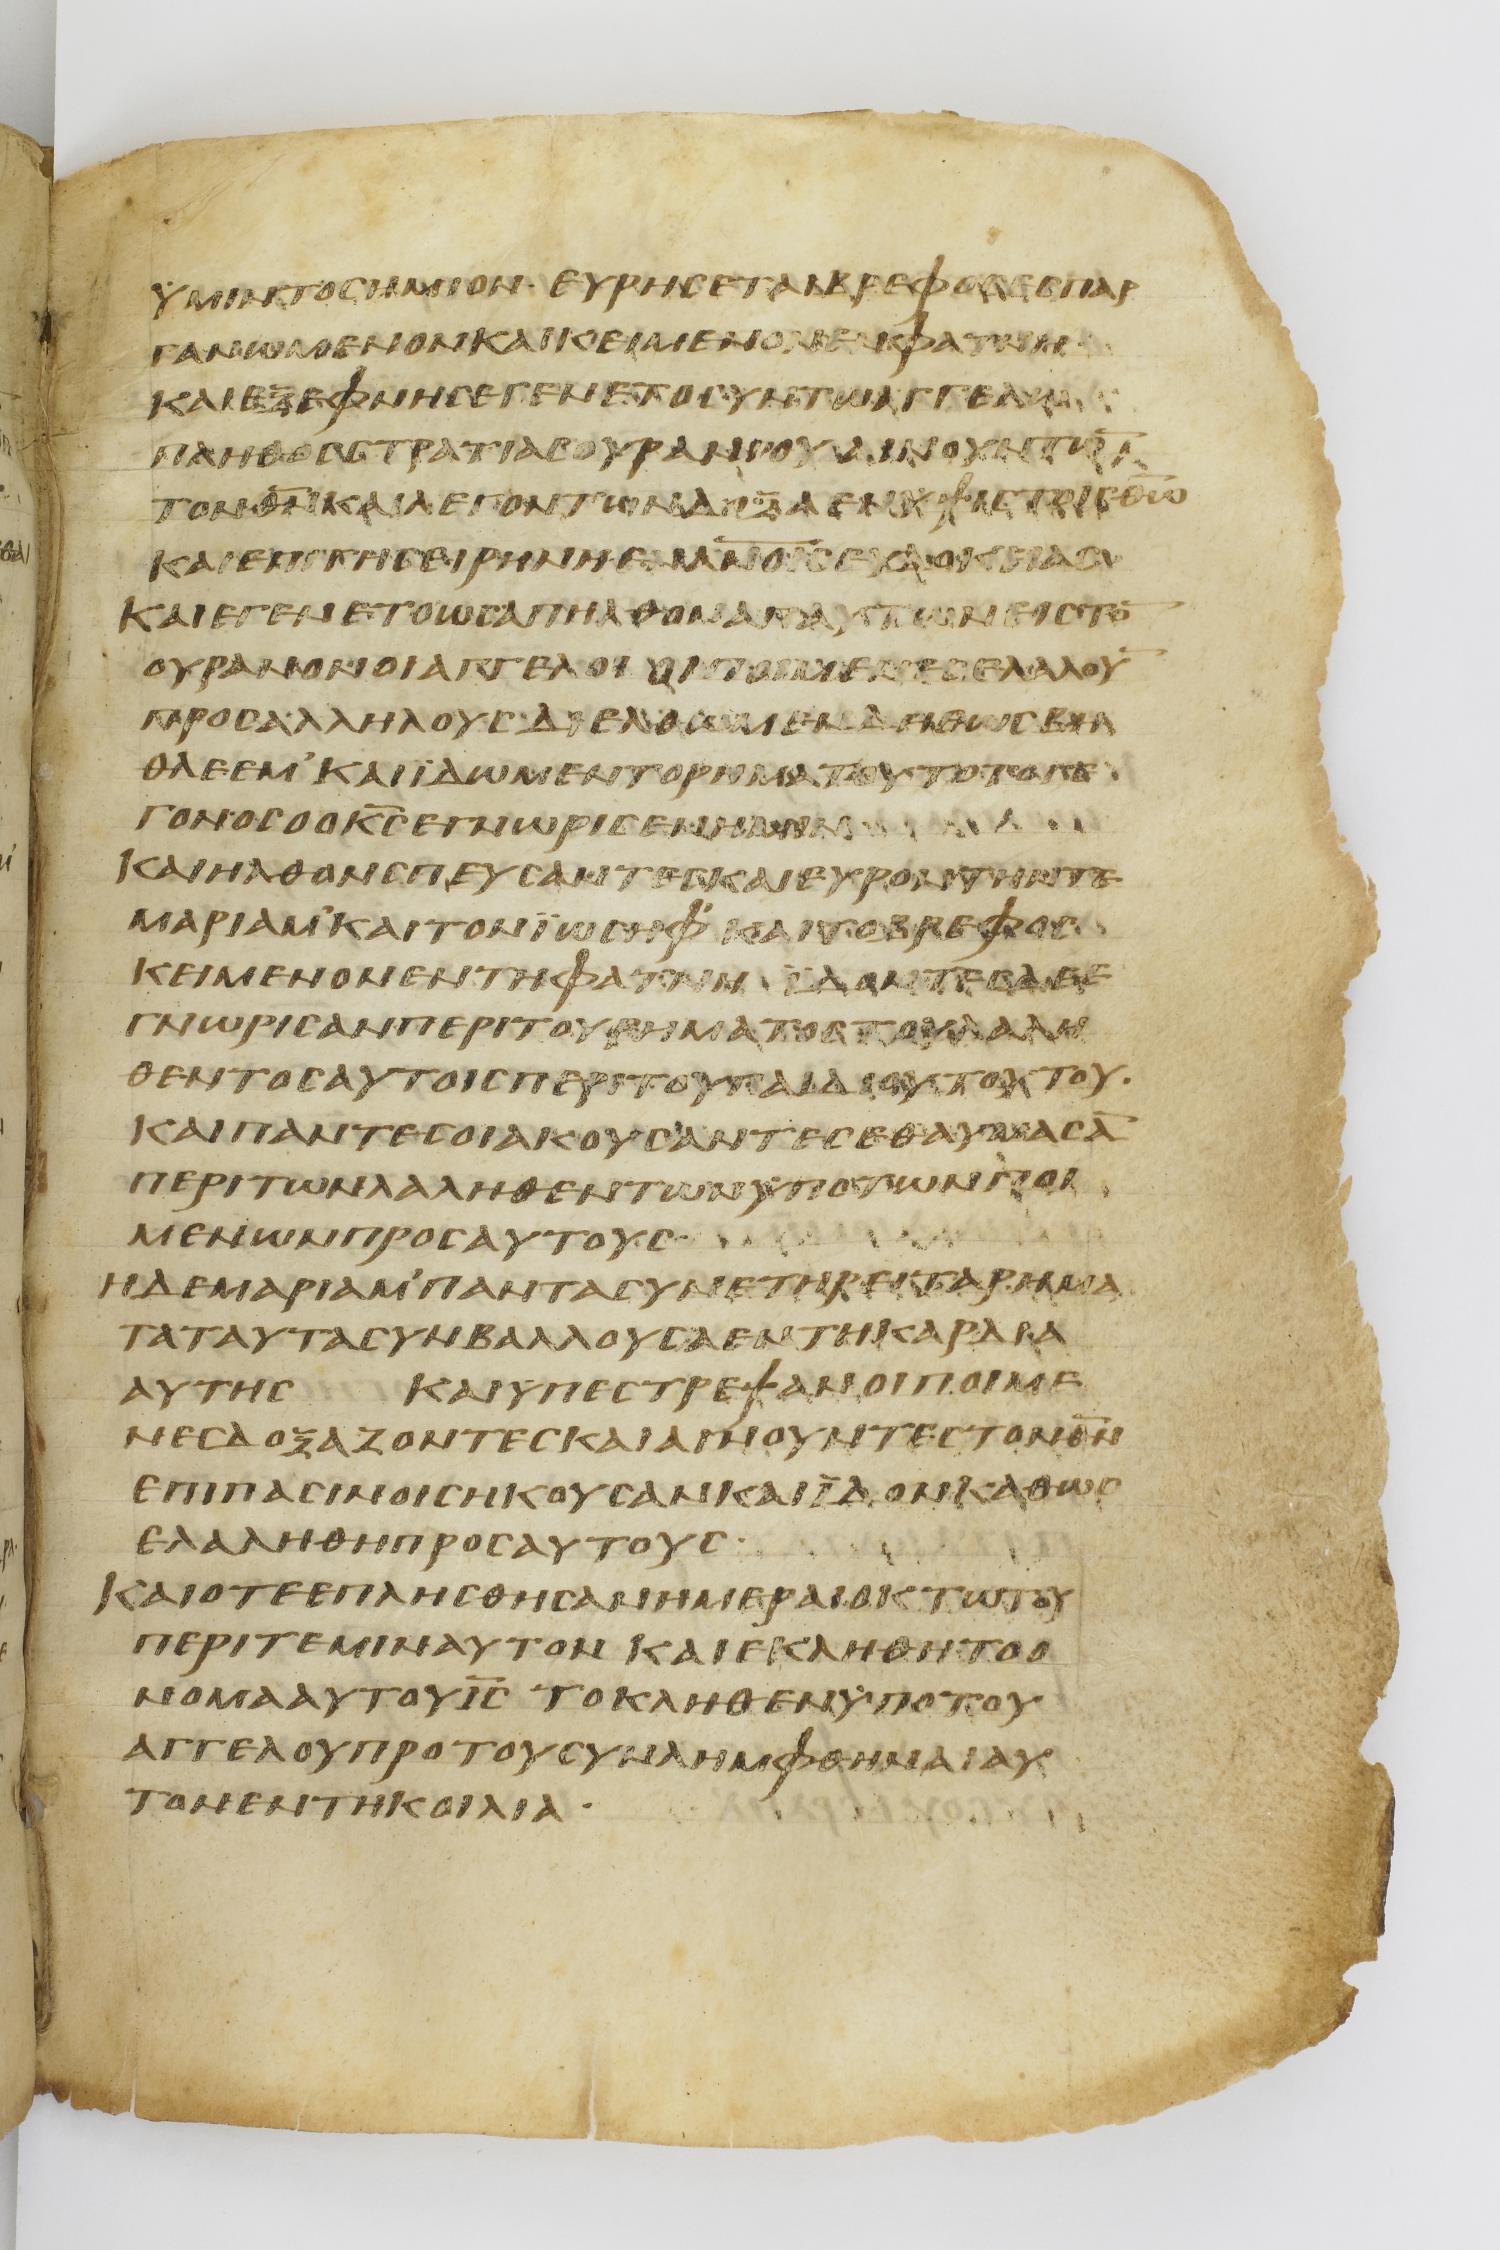 ϋμιντοσημιον· ευρησεταιβρεφοσεσπαρ
γανωμενονκαικειμενονενφατνη
καιεξεφνησεγενετοσυντωαγγελω
πληθοσστρατιασουρανιουαινουντω̅
τονθ̅ν̅καιλεγοντωνδοξαενυψιστοισθ̅ω̅
καιεπιγησειρηνηεναν̅ο̅ι̅σ̅ευδοκειασ
καιεγενετοωσαπηλθοναπαυτωνειστο̅
ουρανονοιαγγελοιοιποιμενεσελαλου̅
προσαλληλουσδιελθωμενδηεωσβη
θλεεμ' καιϊδωμεντορηματουτοτογε
γονοσοοκ̅σ̅εγνωρισενημιν
καιηλθονσπευσαντεσκαιευροντηντε
μαριαμ' καιτονϊωσηφ' καιτοβρεφοσ
κειμενονεντηφατνη ϊδοντεσδεε
γνωρισανπεριτουρηματοστουλαλη
θεντοσαυτοισπεριτουπαιδιουτουτου.
καιπαντεσοιακουσαντεσεθαυμασα̅
περιτωνλαληθεντωνυποτωνποι
μενωνπροσαυτουσ·
ηδεμαριαμ' πανταсυνετηρειταρημα
ταταυτασυνβαλλουσαεντηκαρδια
αυτησ καιϋπεστρεψανοιποιμε
νεσδοξαζοντεσκαιαινουντεστονθ̅ν̅
επιπασινοισηκουσανκαιϊδονκαθωσ
ελαληθηπροσαυτουσ·
καιοτεεπλησθησανημεραιοκτωτου
περιτεμιναυτον καιεκληθητοο
νομααυτουι̅σ̅ τοκληθενϋποτου
αγγελουπροτουσυνλημφθηναιαυ
τονεντηκοιλια·